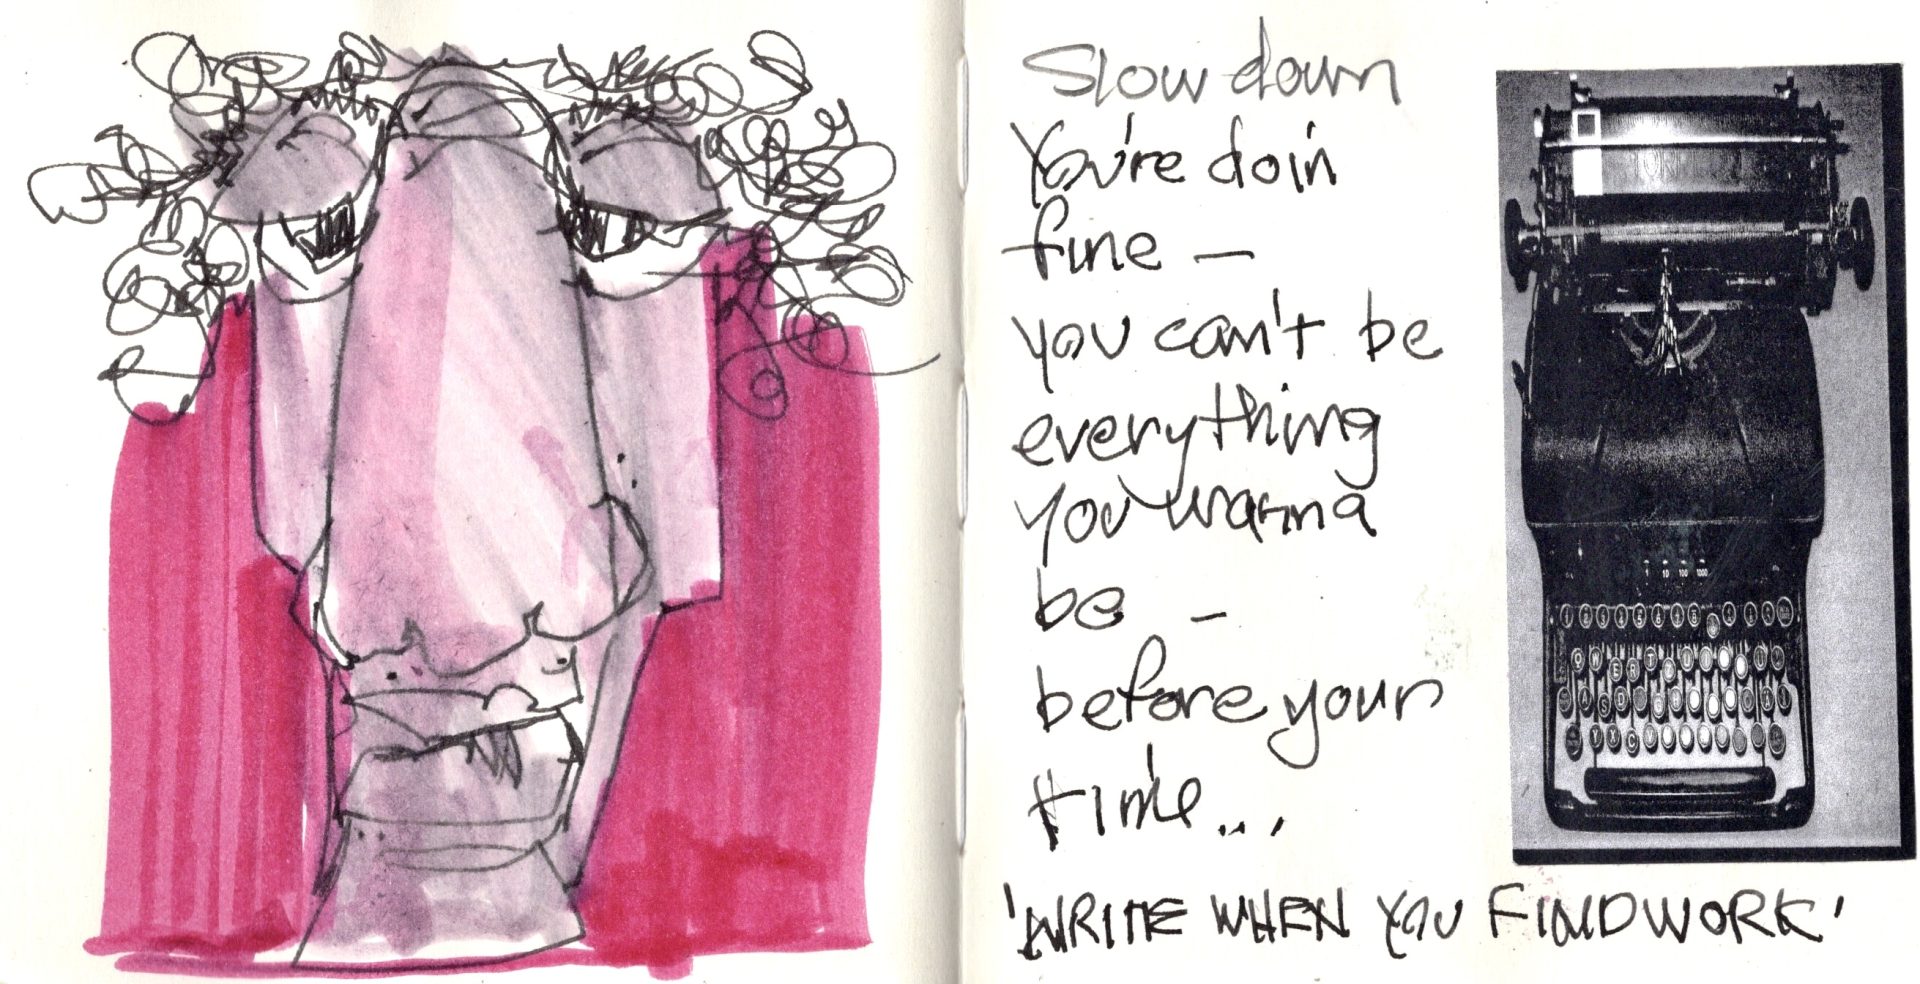 Slow down
You're doin
fine —
you can't be
everything
you wanna
be —
before your
time...
'WRITE WHEN YOU FIND WORK'